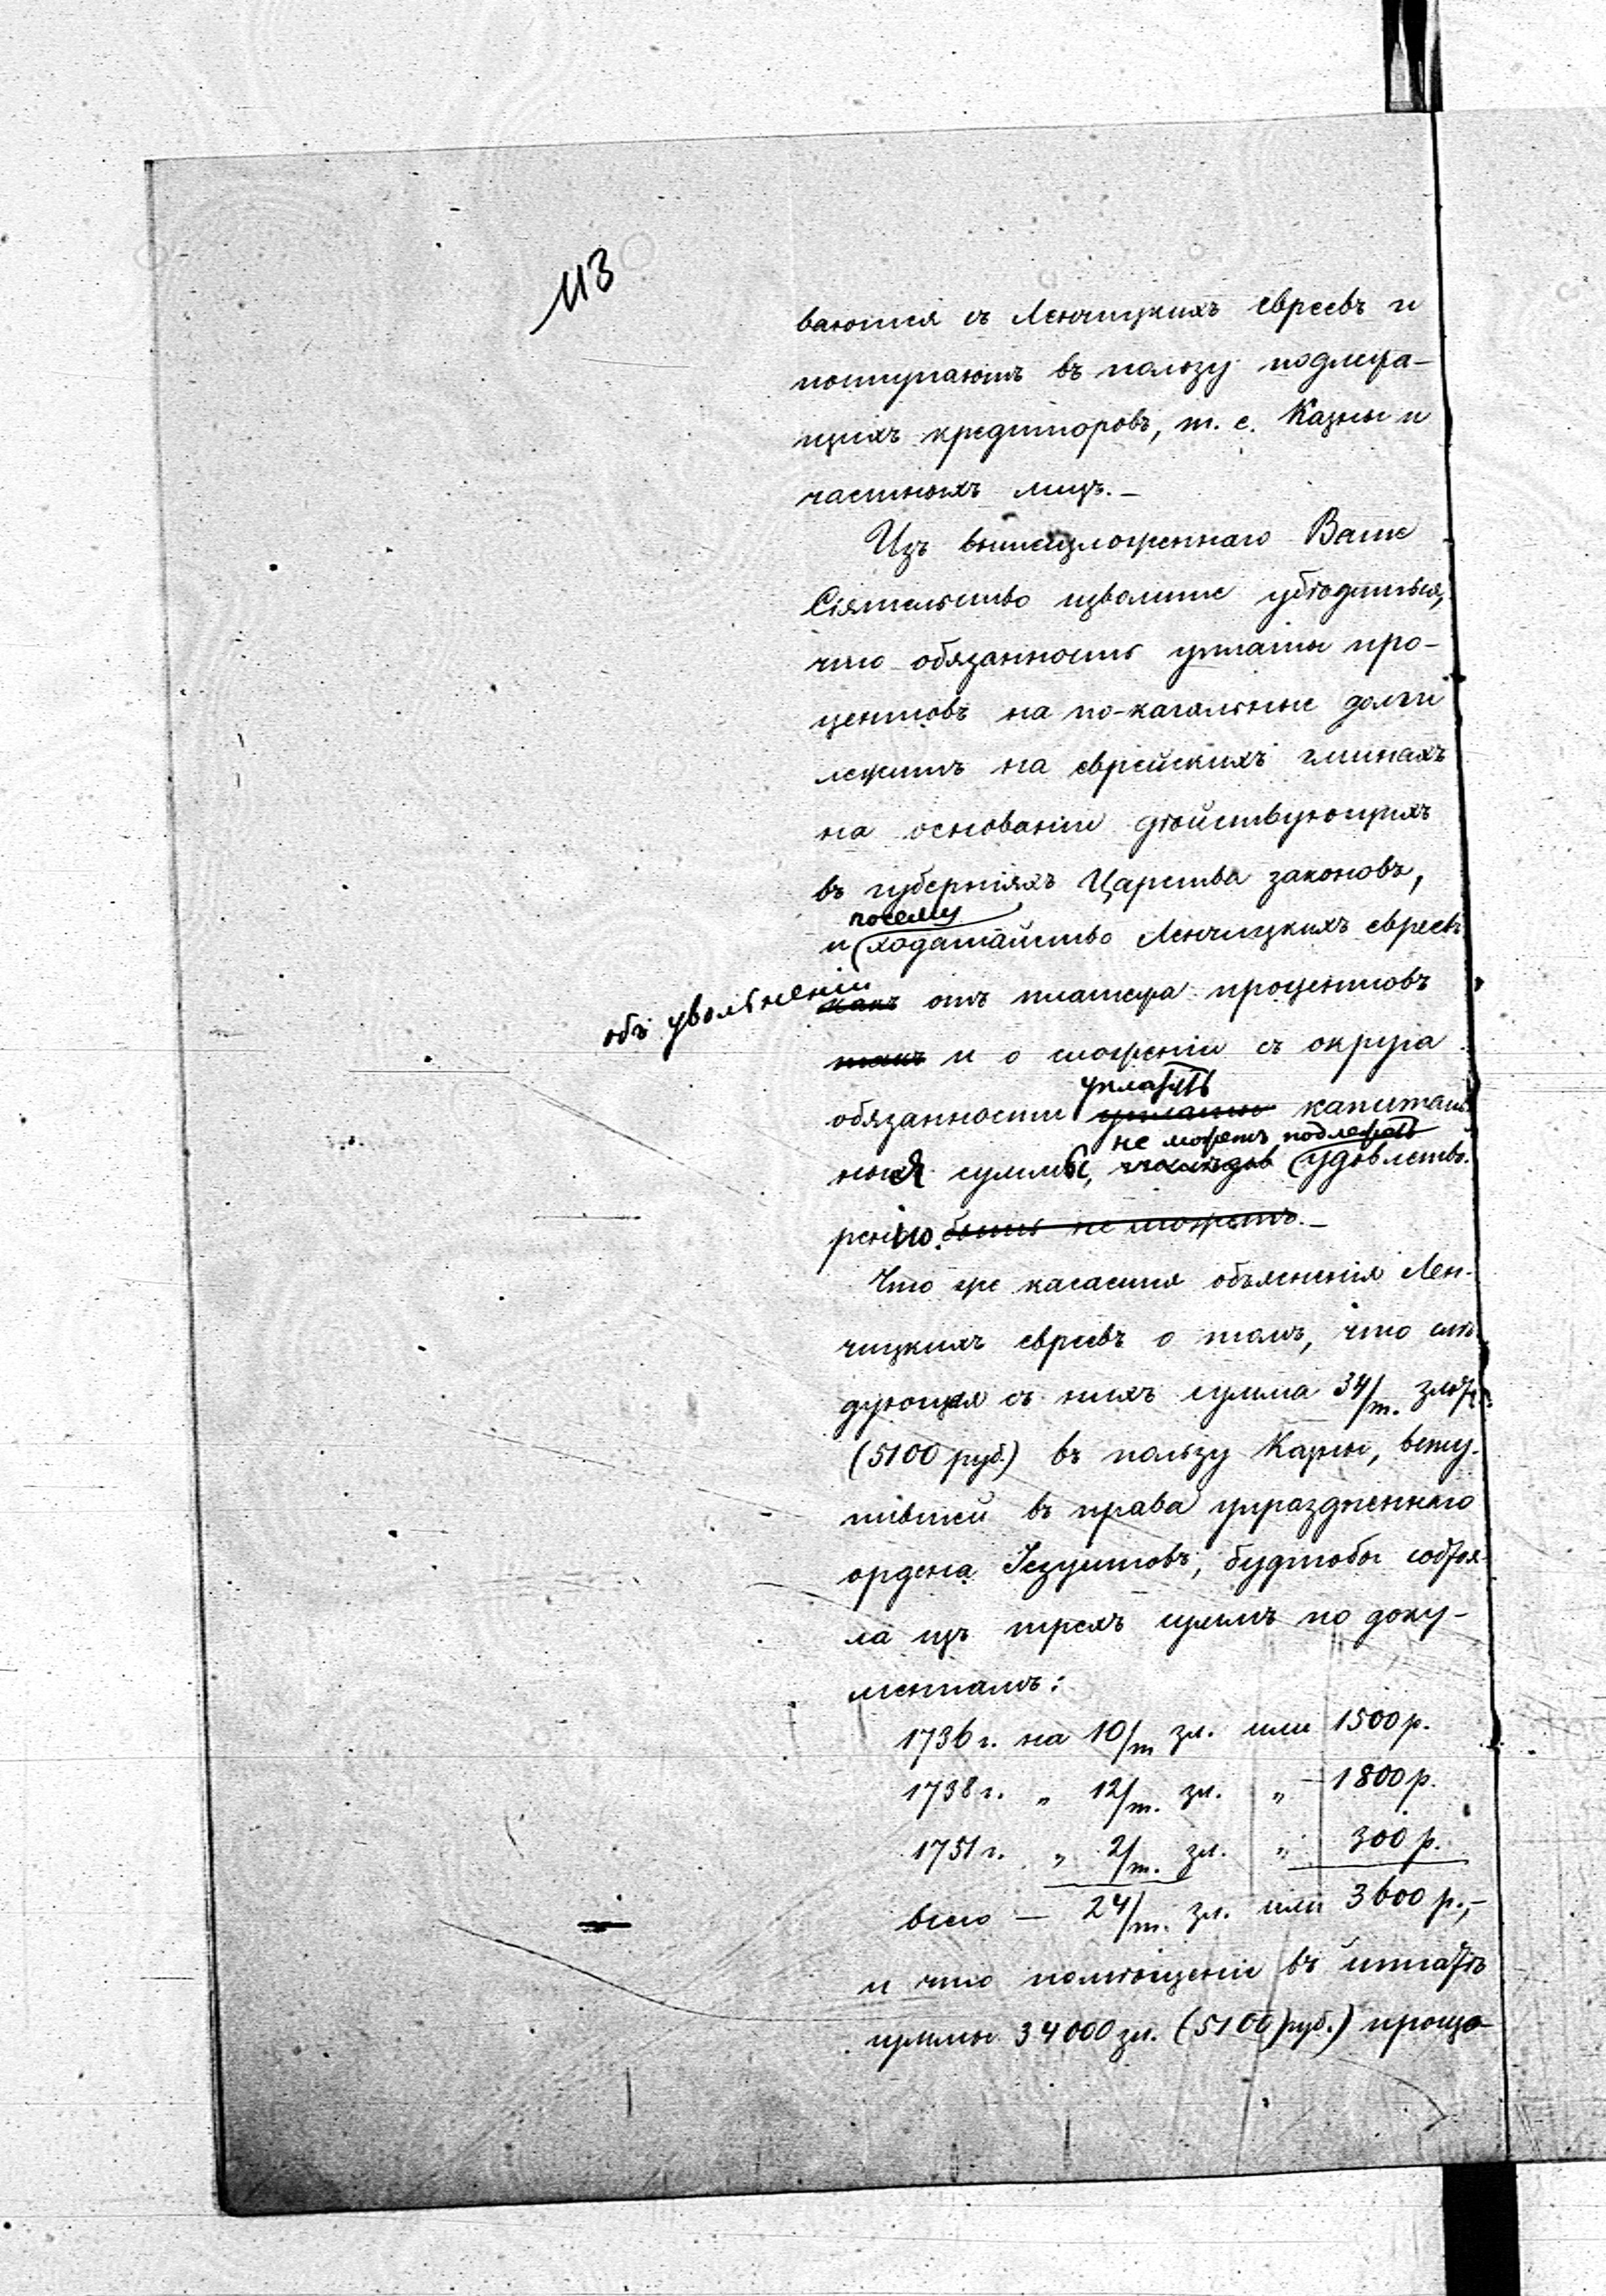 113
ваются съ Ленчицкихъ евреевъ и
поступаютъ въ пользу подлежа-
щихъ кредиторовъ, т. е. Казны и
частныхъ лицъ.—
Изъ вышеизложеннаго Ваше
Сіятельство изволите убѣдиться,
что обязанность уплаты про-
центовъ на по-кагальные долги
лежитъ на еврейскихъ гминахъ
на основаніи дѣйствующихъ
въ губерніяхъ Царства законовъ,
посему
и ходатайство Ленчицкихъ евреевъ
объ увольненіи
какъ отъ платежа процентовъ
такъ и о сложеніи съ округа
уплатить
обязанности уплаты капиталь
не можетъ подлежать
ныя суммы, удовлетво-
ренію. быть не можетъ.—
Что же касается объясненія Лен-
чицкихъ евреевъ о томъ, что слѣ-
дующая съ нихъ сумма 34/т. злот.
(5100 руб.) въ пользу Казны, всту-
пившей въ права упраздненнаго
ордена Іезуитовъ, будтобы состоя-
ла изъ трехъ суммъ по доку-
ментамъ:
1736 г. на 10/т зл. или 1500 р.
1738 г. „ 12/т. зл. „ 1800 р.
1751 г. „ 2/т. зл. „ 300 р.
всего — 24/т. зл. или 3600 р.,—
и что помѣщеніе въ штатѣ
суммы 34000 зл. (5100 руб.) произо-